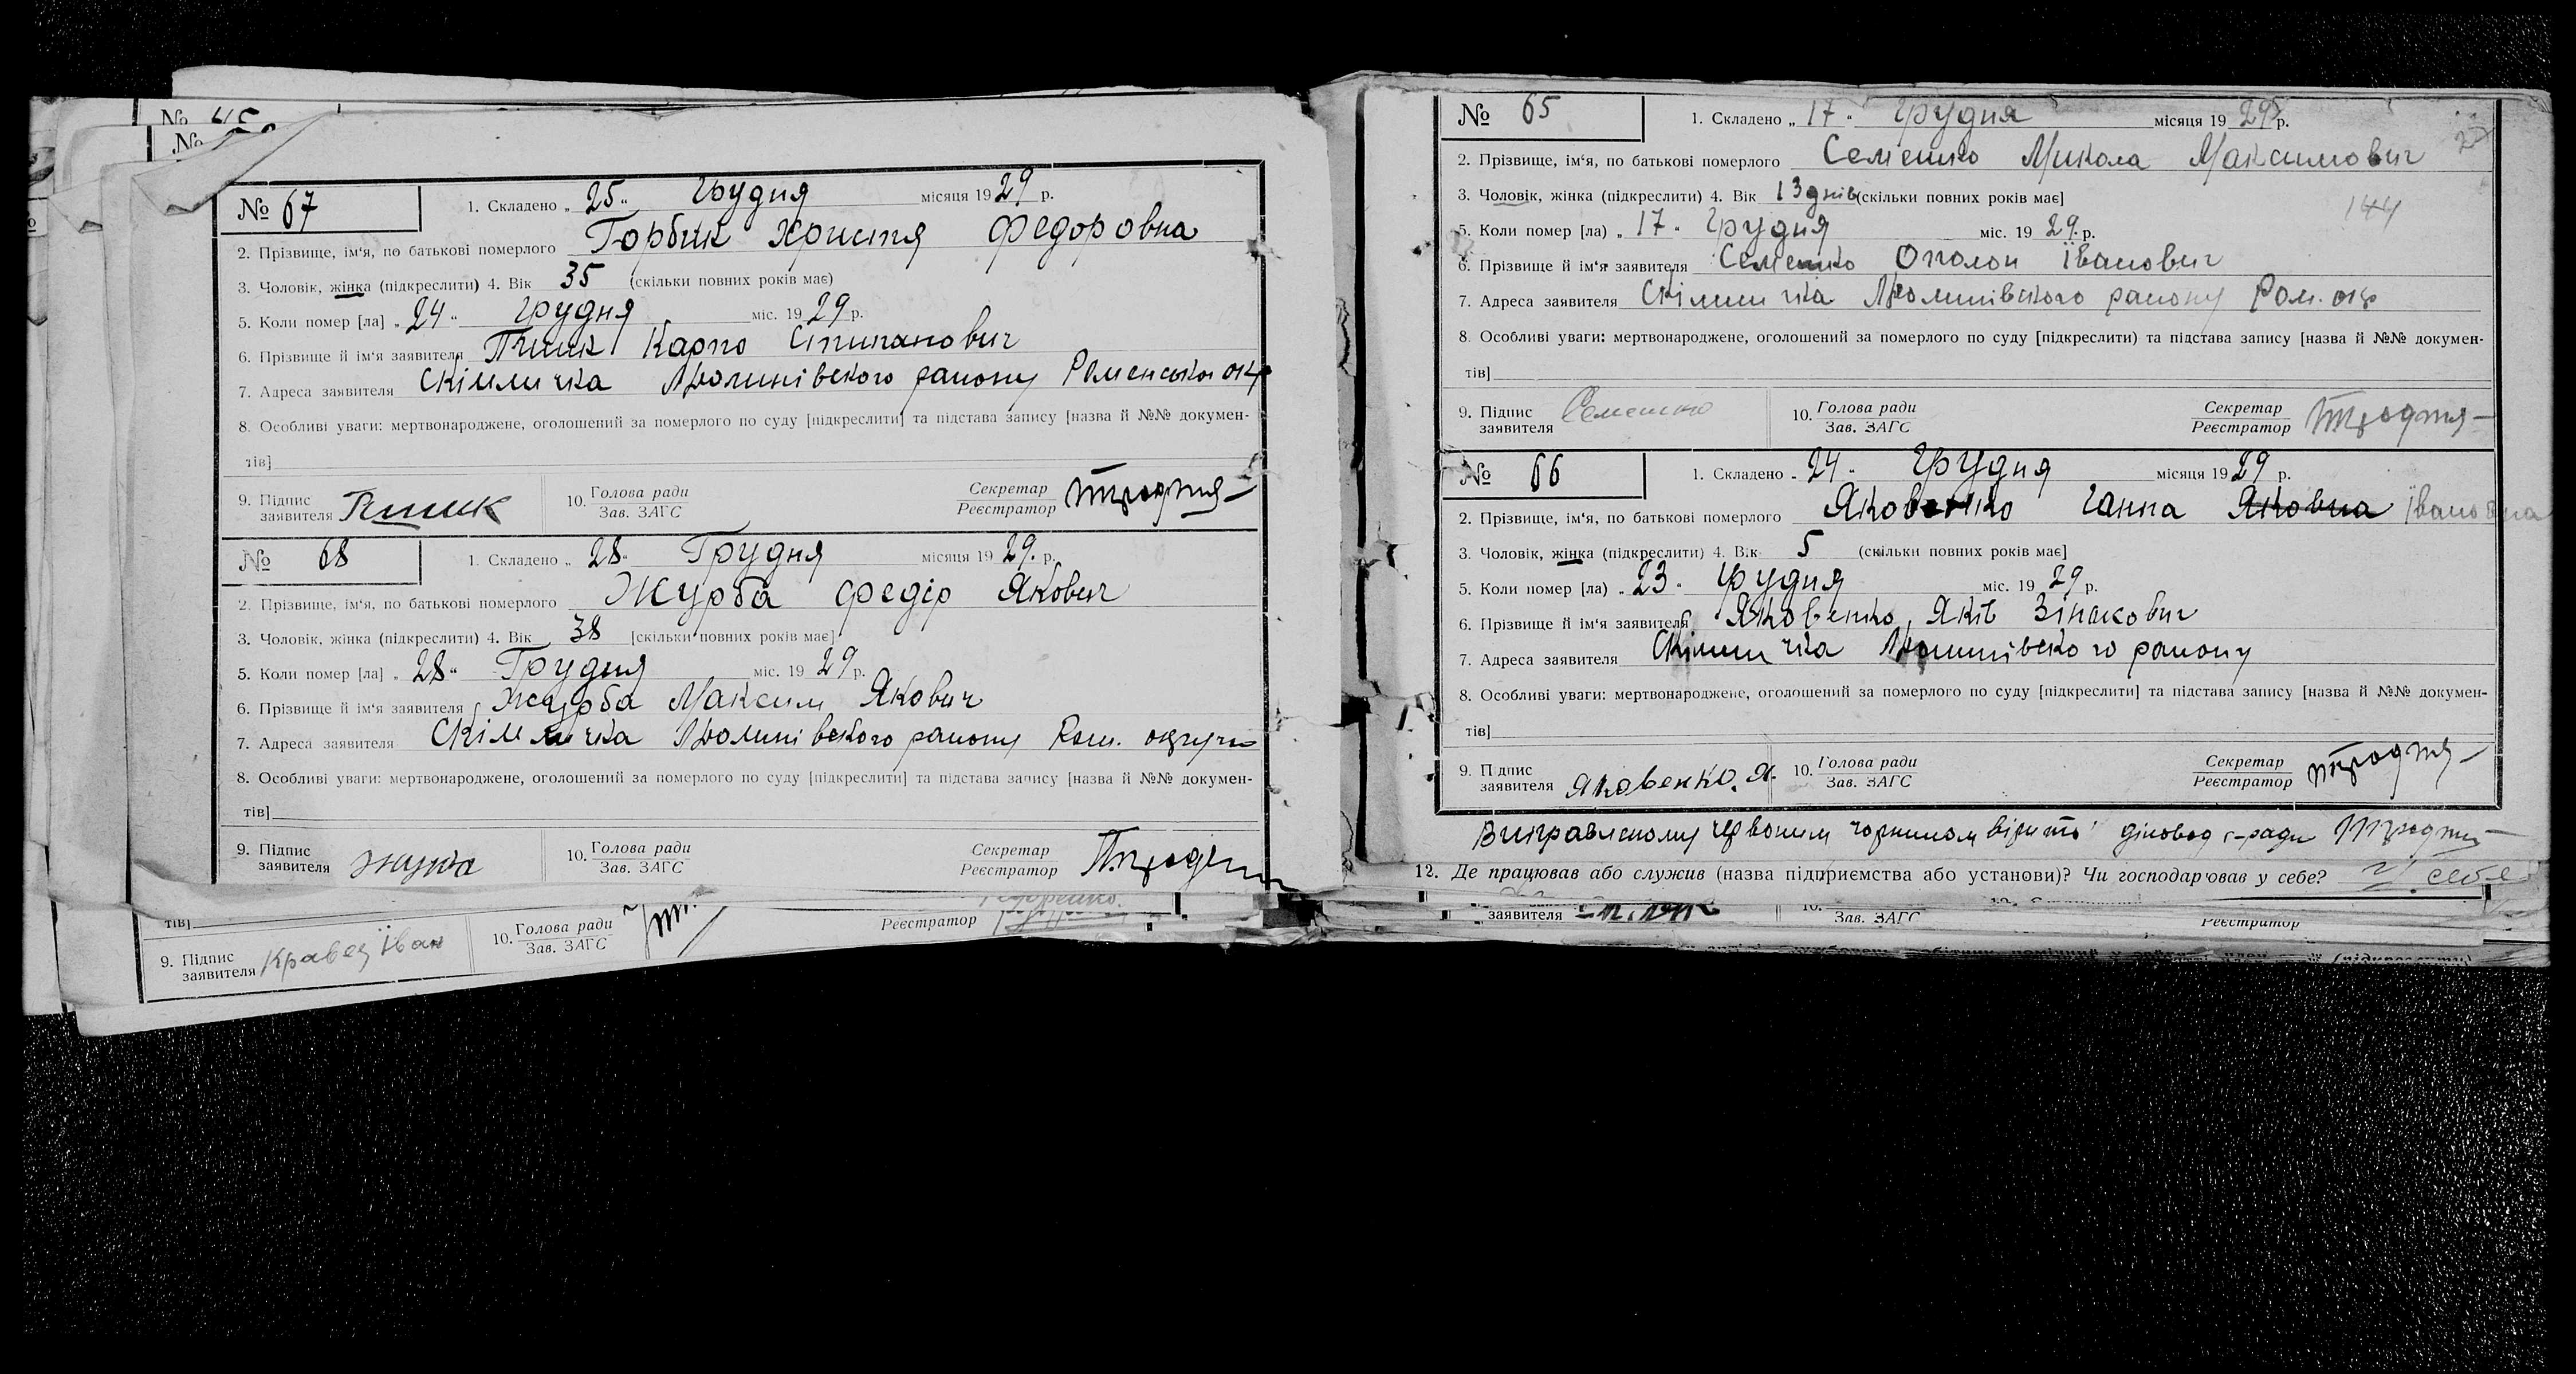 № 45
№
№ 67
1. Складено „ 25 “ Грудня місяця 19 29 р.
2. Прізвище, ім‘я, по батькові померлого Горбик Христя Федоровна
3. Чоловік, жінка (підкреслити) 4. Вік 35 (скільки повних років має)
5. Коли помер [ла] „ 24 “ Грудня міс. 19 29 р.
6. Прізвище й ім‘я заявителя Пшик Карпо Стипанович
7. Адреса заявителя Скіммичка району Роменської окр
8. Особливі уваги: мертвонароджене, оголошений за померлого по суду [підкреслити] та підстава запису [назва й №№ докумен-
тів]
9. Підпис заявителя Пшик 10. Голова ради Зав. ЗАГС Секретар Реєстратор
№ 68
1. Складено „ 28 “ Грудня місяця 19 29. р.
2. Прізвище, ім‘я, по батькові померлого Журба Федір Якович
3. Чоловік, жінка (підкреслити) 4. Вік 38 [скільки повних років має]
5. Коли помер [ла] „ 28 “ Грудня міс. 19 29 р.
6. Прізвище й ім‘я заявителя Журба Максим Якович
7. Адреса заявителя Скіммичка району Ром. округи
8. Особливі уваги: мертвонароджене, оголошений за померлого по суду [підкреслити] та підстава запису [назва й №№ докумен-
тів]
9. Підпис заявителя 10. Голова ради Зав. ЗАГС Секретар Реєстратор
тів]
9. Підпис заявителя Кравец Іван 10. Голова ради Зав. ЗАГС Реєстратор
№ 65
1. Складено „ 17 “ Грудня місяця 19 29 р.
2. Прізвище, ім‘я, по батькові померлого Семешко Микола Максимович
3. Чоловік, жінка (підкреслити) 4. Вік 13 днів (скільки повних років має]
144
5. Коли помер [ла) „ 17 “ Грудня міс. 19 29. р.
6. Прізвище й ім‘я заявителя Семешко Ополон Іванович
7. Адреса заявителя району Ром. окр
8. Особливі уваги: мертвонароджене, оголошений за померлого по суду [підкреслити) та підстава запису [назва й №№ докумен-
тів]
9. Підпис заявителя Семешко 10. Голова ради Зав. ЗАГС Секретар Реєстратор
№ 66
1. Складено „ 24 “ Грудня місяця 19 29 р.
2. Прізвище, ім‘я, по батькові померлого Яковенко Ганна Яковна Івановна
3. Чоловік, жінка (підкреслити) 4. Вік 5 (скільки повних років має]
5. Коли помер [ла) „ 23 “ Грудня міс. 19 29 р.
6. Прізвище й ім‘я заявителя Яковенко Яків Зінькович
7. Адреса заявителя району
8. Особливі уваги: мертвонароджене, оголошений за померлого по суду [підкреслити] та підстава запису [назва й №№ докумен-
тів]
9. Підпис заявителя Яковенко. Я. 10. Голова ради Зав. ЗАГС Секретар Реєстратор
Виправленому червоним чорнилом вірить діловод с-ради
12. Де працював або служив (назва підприємства або установи)? Чи господарював у себе? У себе
заявителя 10. Зав. ЗАГС Реєстратор